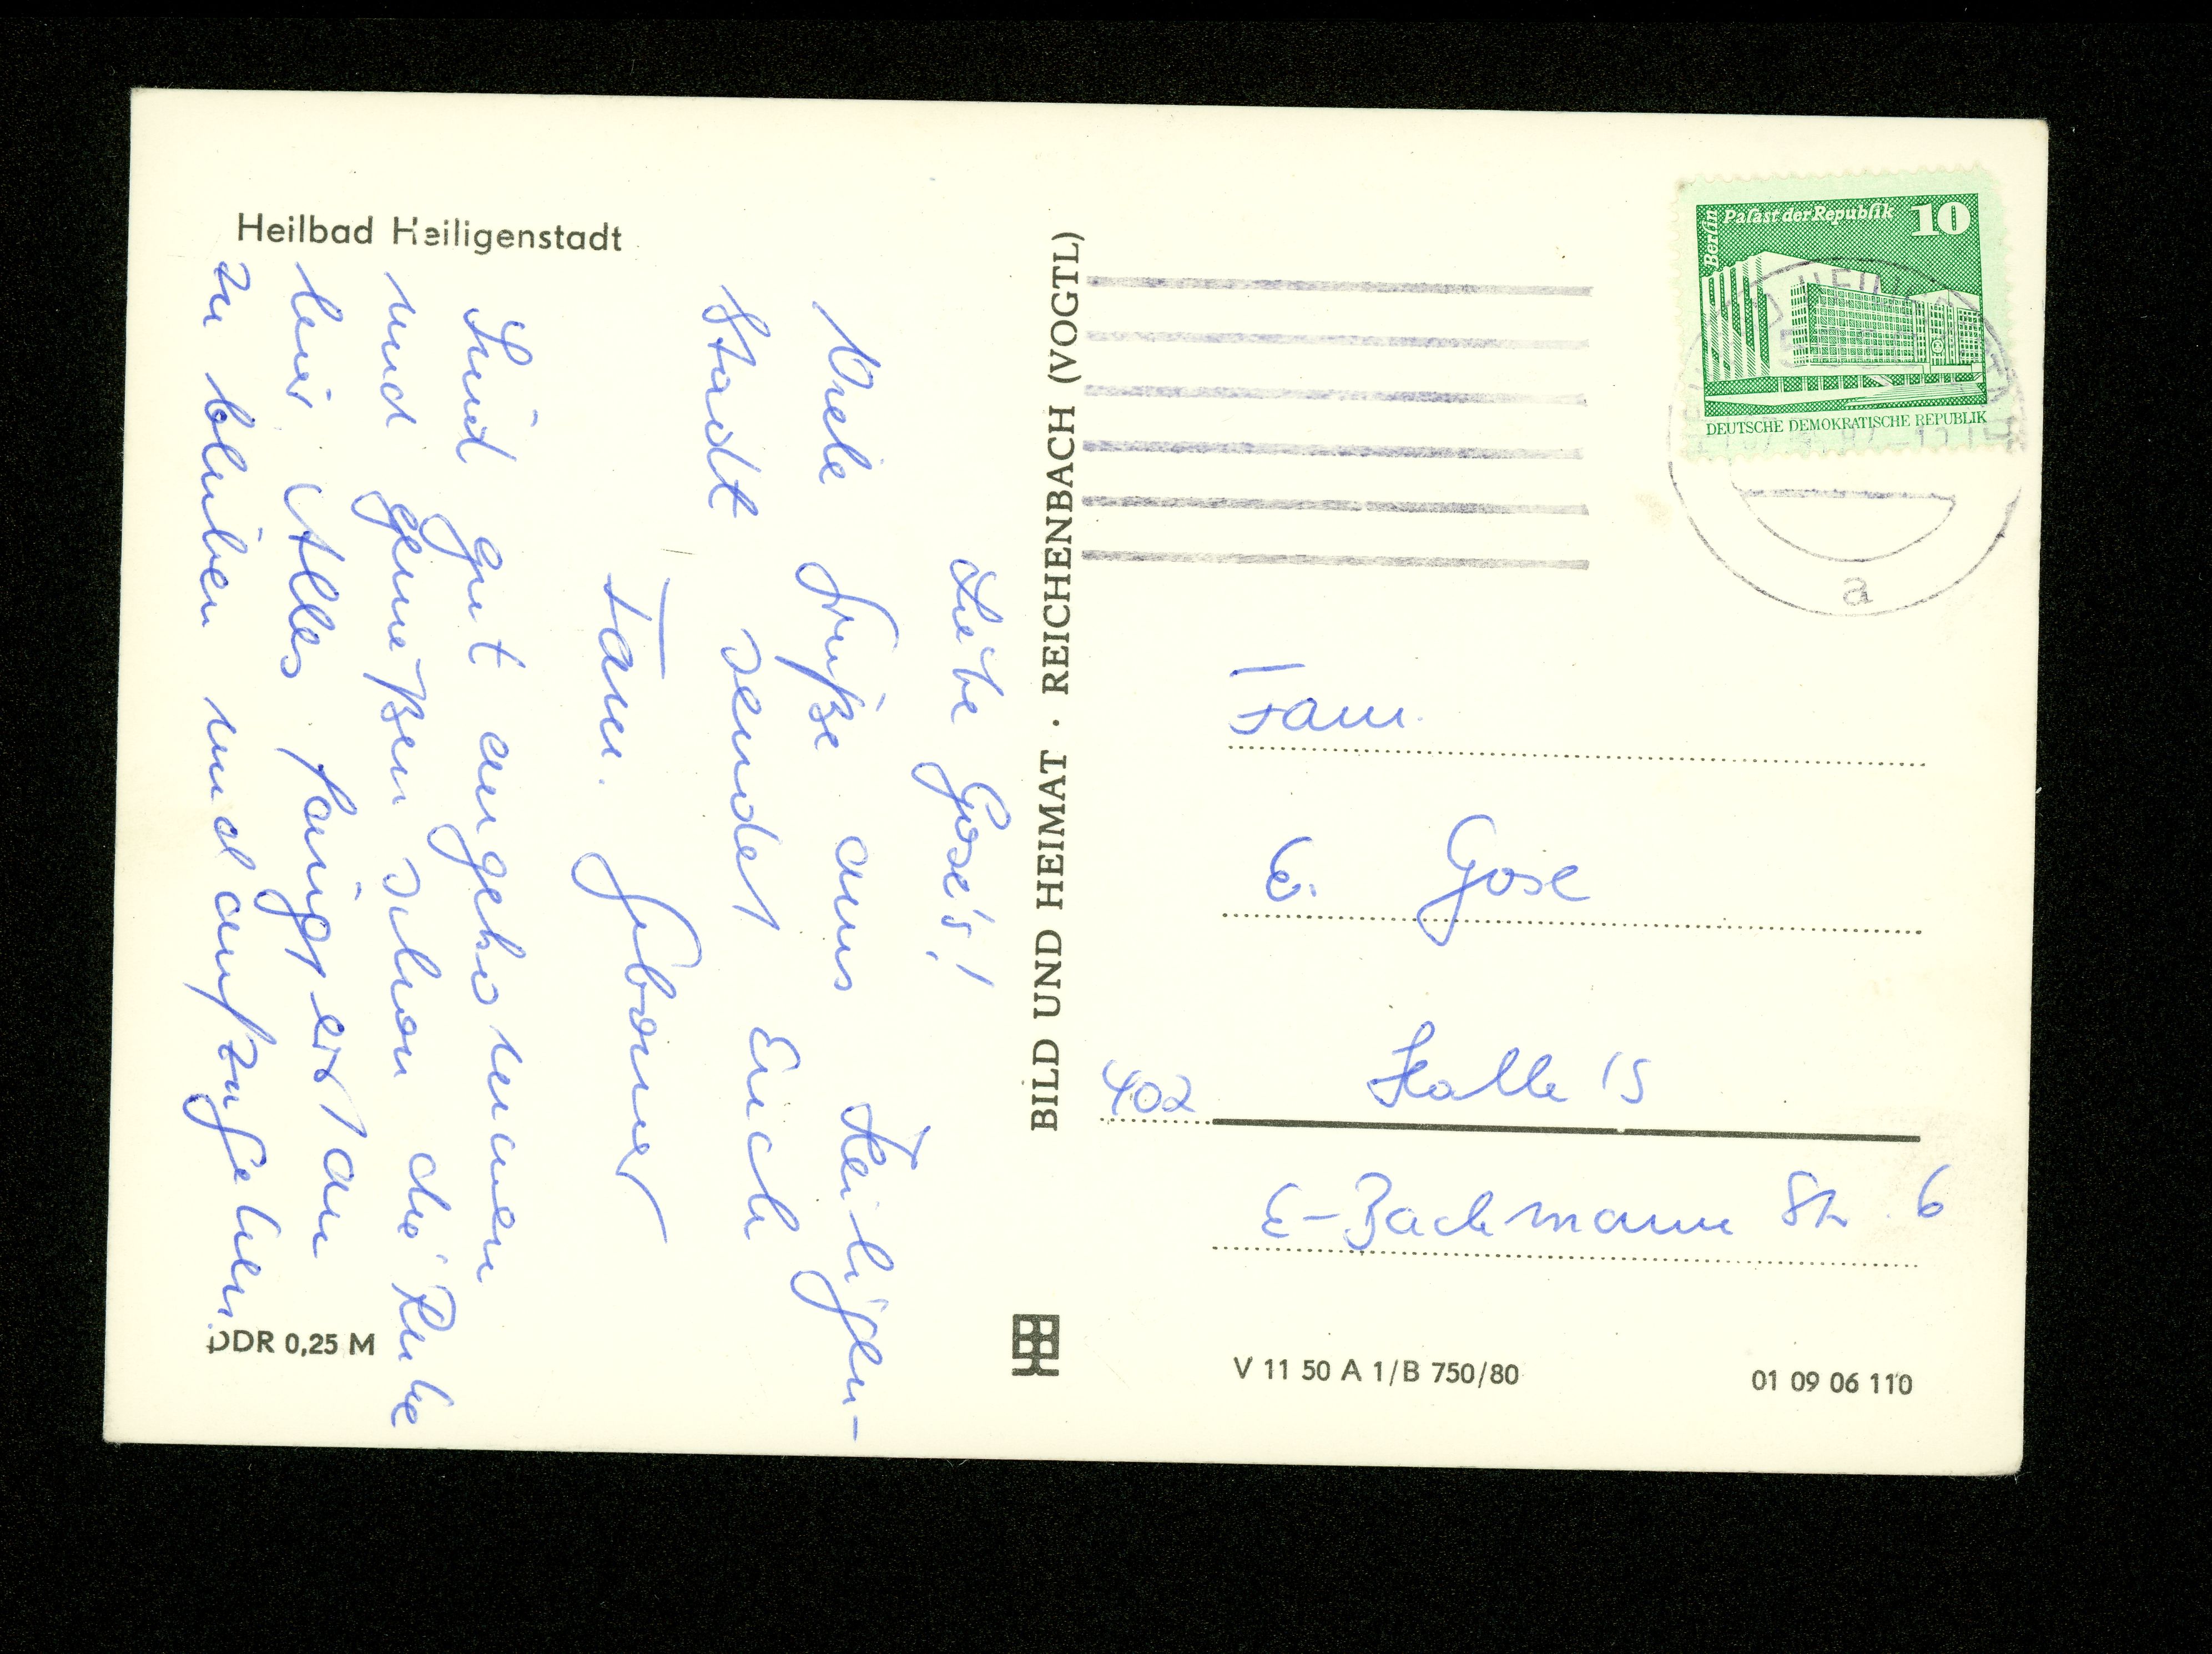 Heilbad Heiligenstadt
Liebe Gose's!
Viele Grüße aus Heiligen-
stadt sendet Euch
Fam.
Sind gut angekommen
und genießen schon die Ruhe
hier. Alles fängt an
zu blühen und aufzugehen.
DDR 0,25 M
BILD UND HEIMAT · REICHENBACH (VOGTL)
Berlin
Palast der Republik 10
DEUTSCHE DEMOKRATISCHE REPUBLIK
a
Fam.
E. Gose
402 Halle 15
E-Bachmann Str. 6
V 11 50 A 1/B 750/80
01 09 06 110